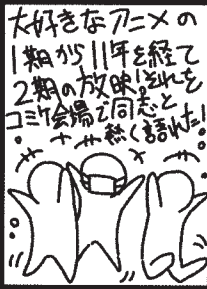 大好きなアニメの
1期から11年を経て
2期の放映!それを
コミケ会場で同志と
熱く語れた!